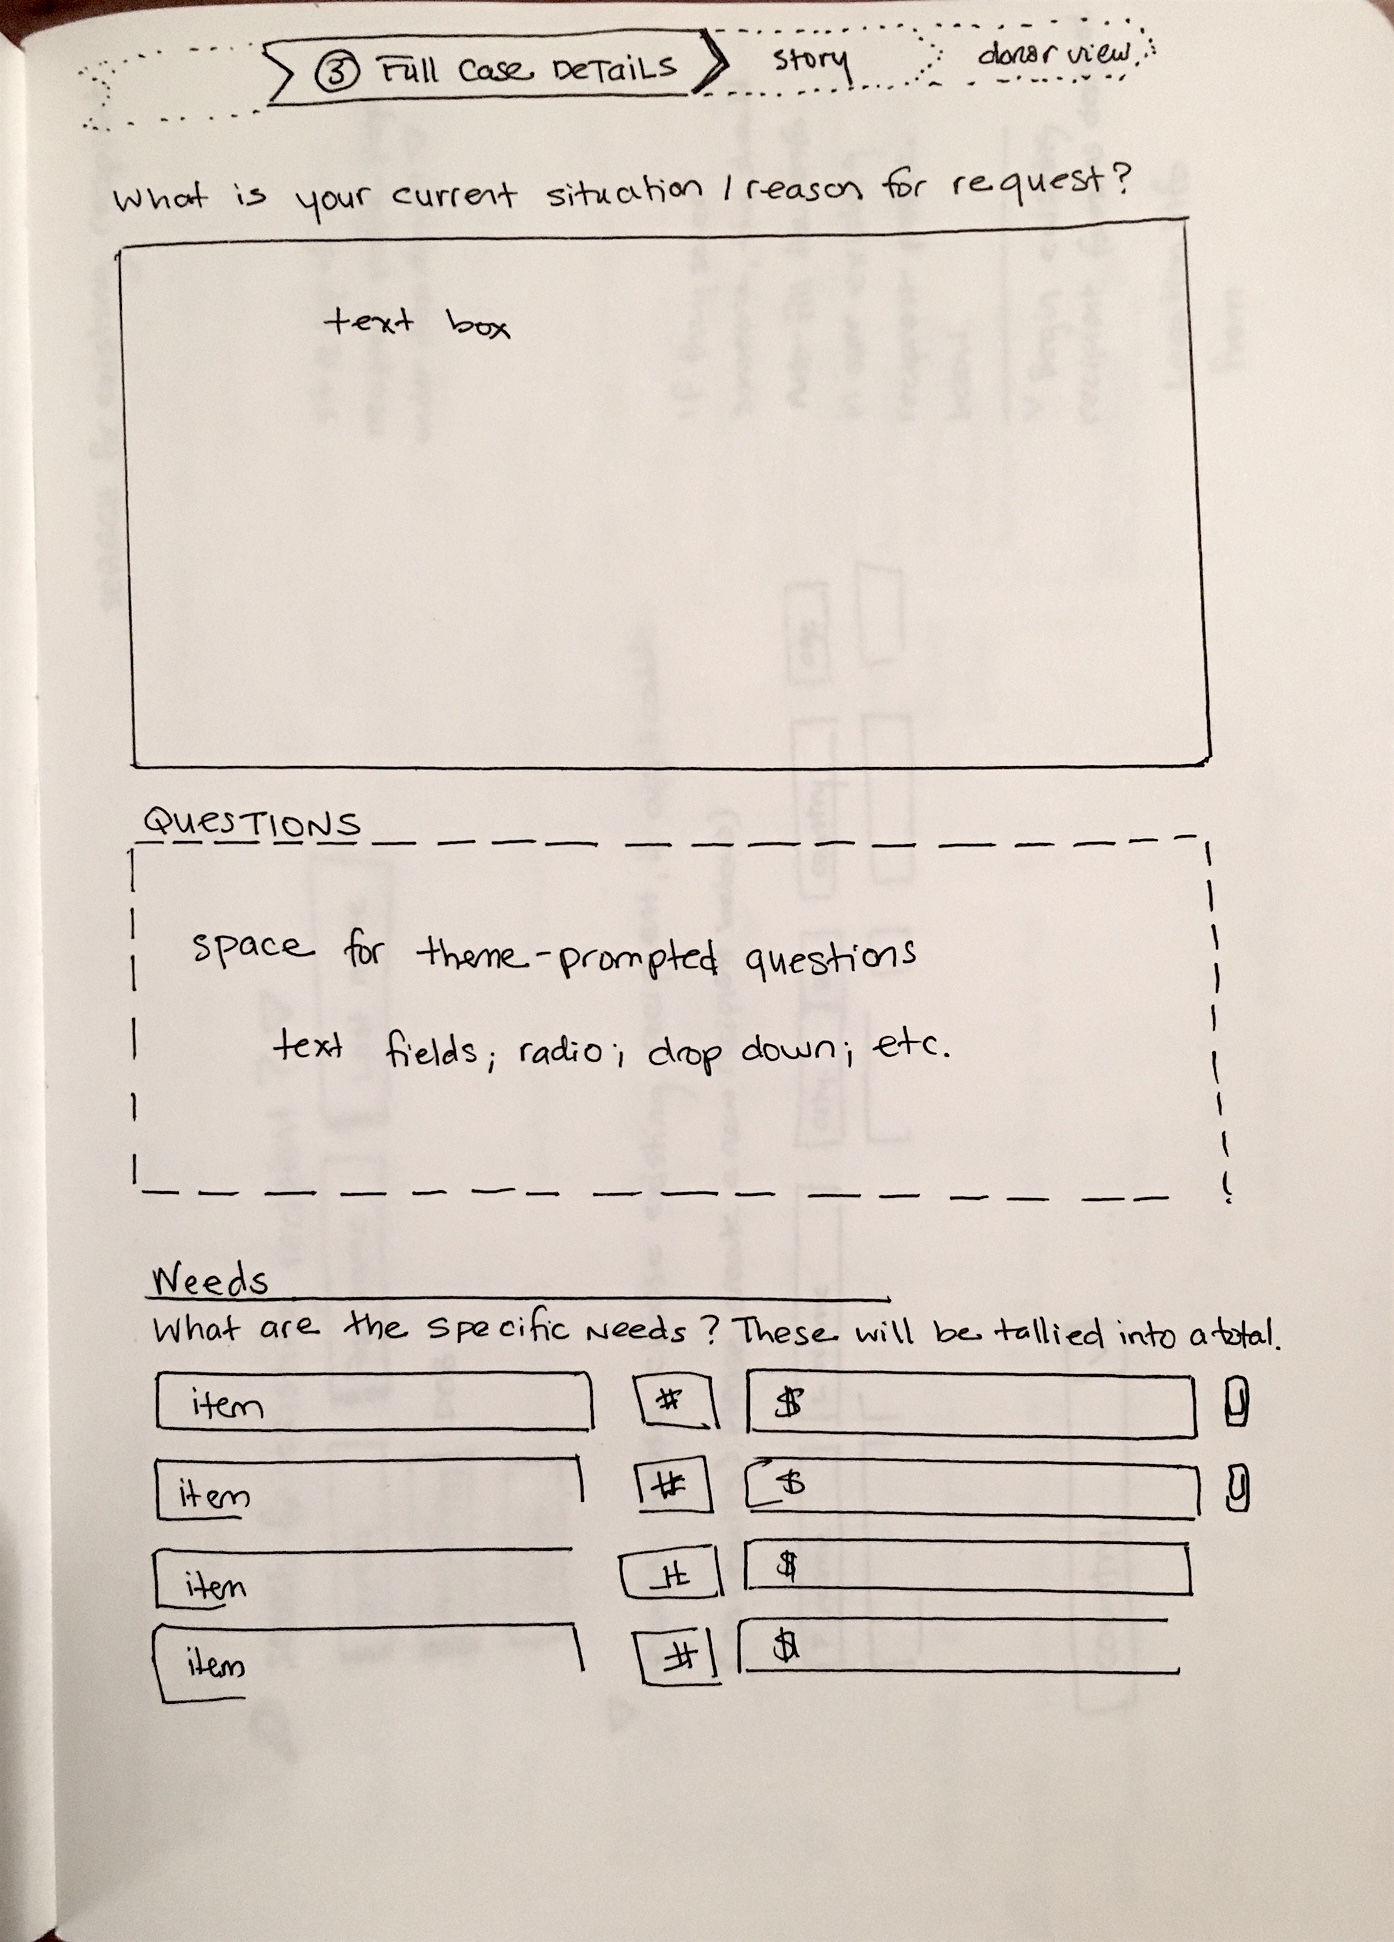 ③ Full Case Details
story
donor view
What is your current situation / reason for request?
text box
QUESTIONS
space for theme-prompted questions
text fields; radio; drop down; etc.
Needs
What are the specific needs? These will be tallied into a total.
item # $
item # $
item # $
item # $